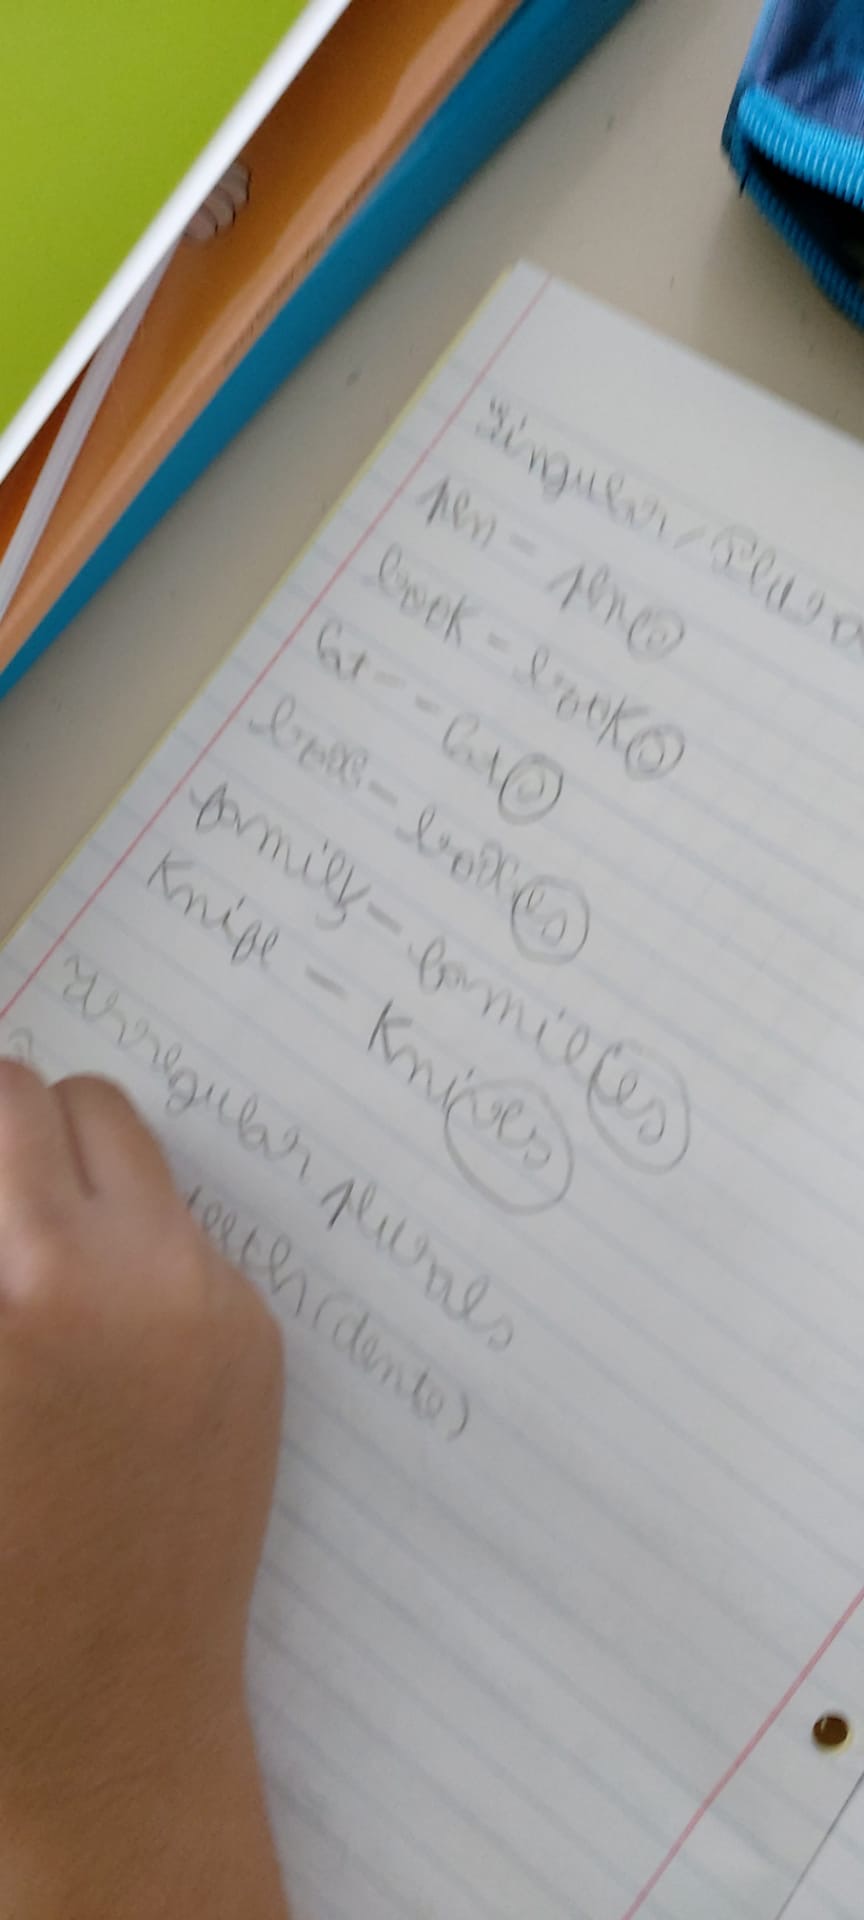 Singular / Plura
pen - pens
book - books
Cat - Cats
box - boxes
family - families
Knife - Knives
Irregular plurals
teeth (dente)